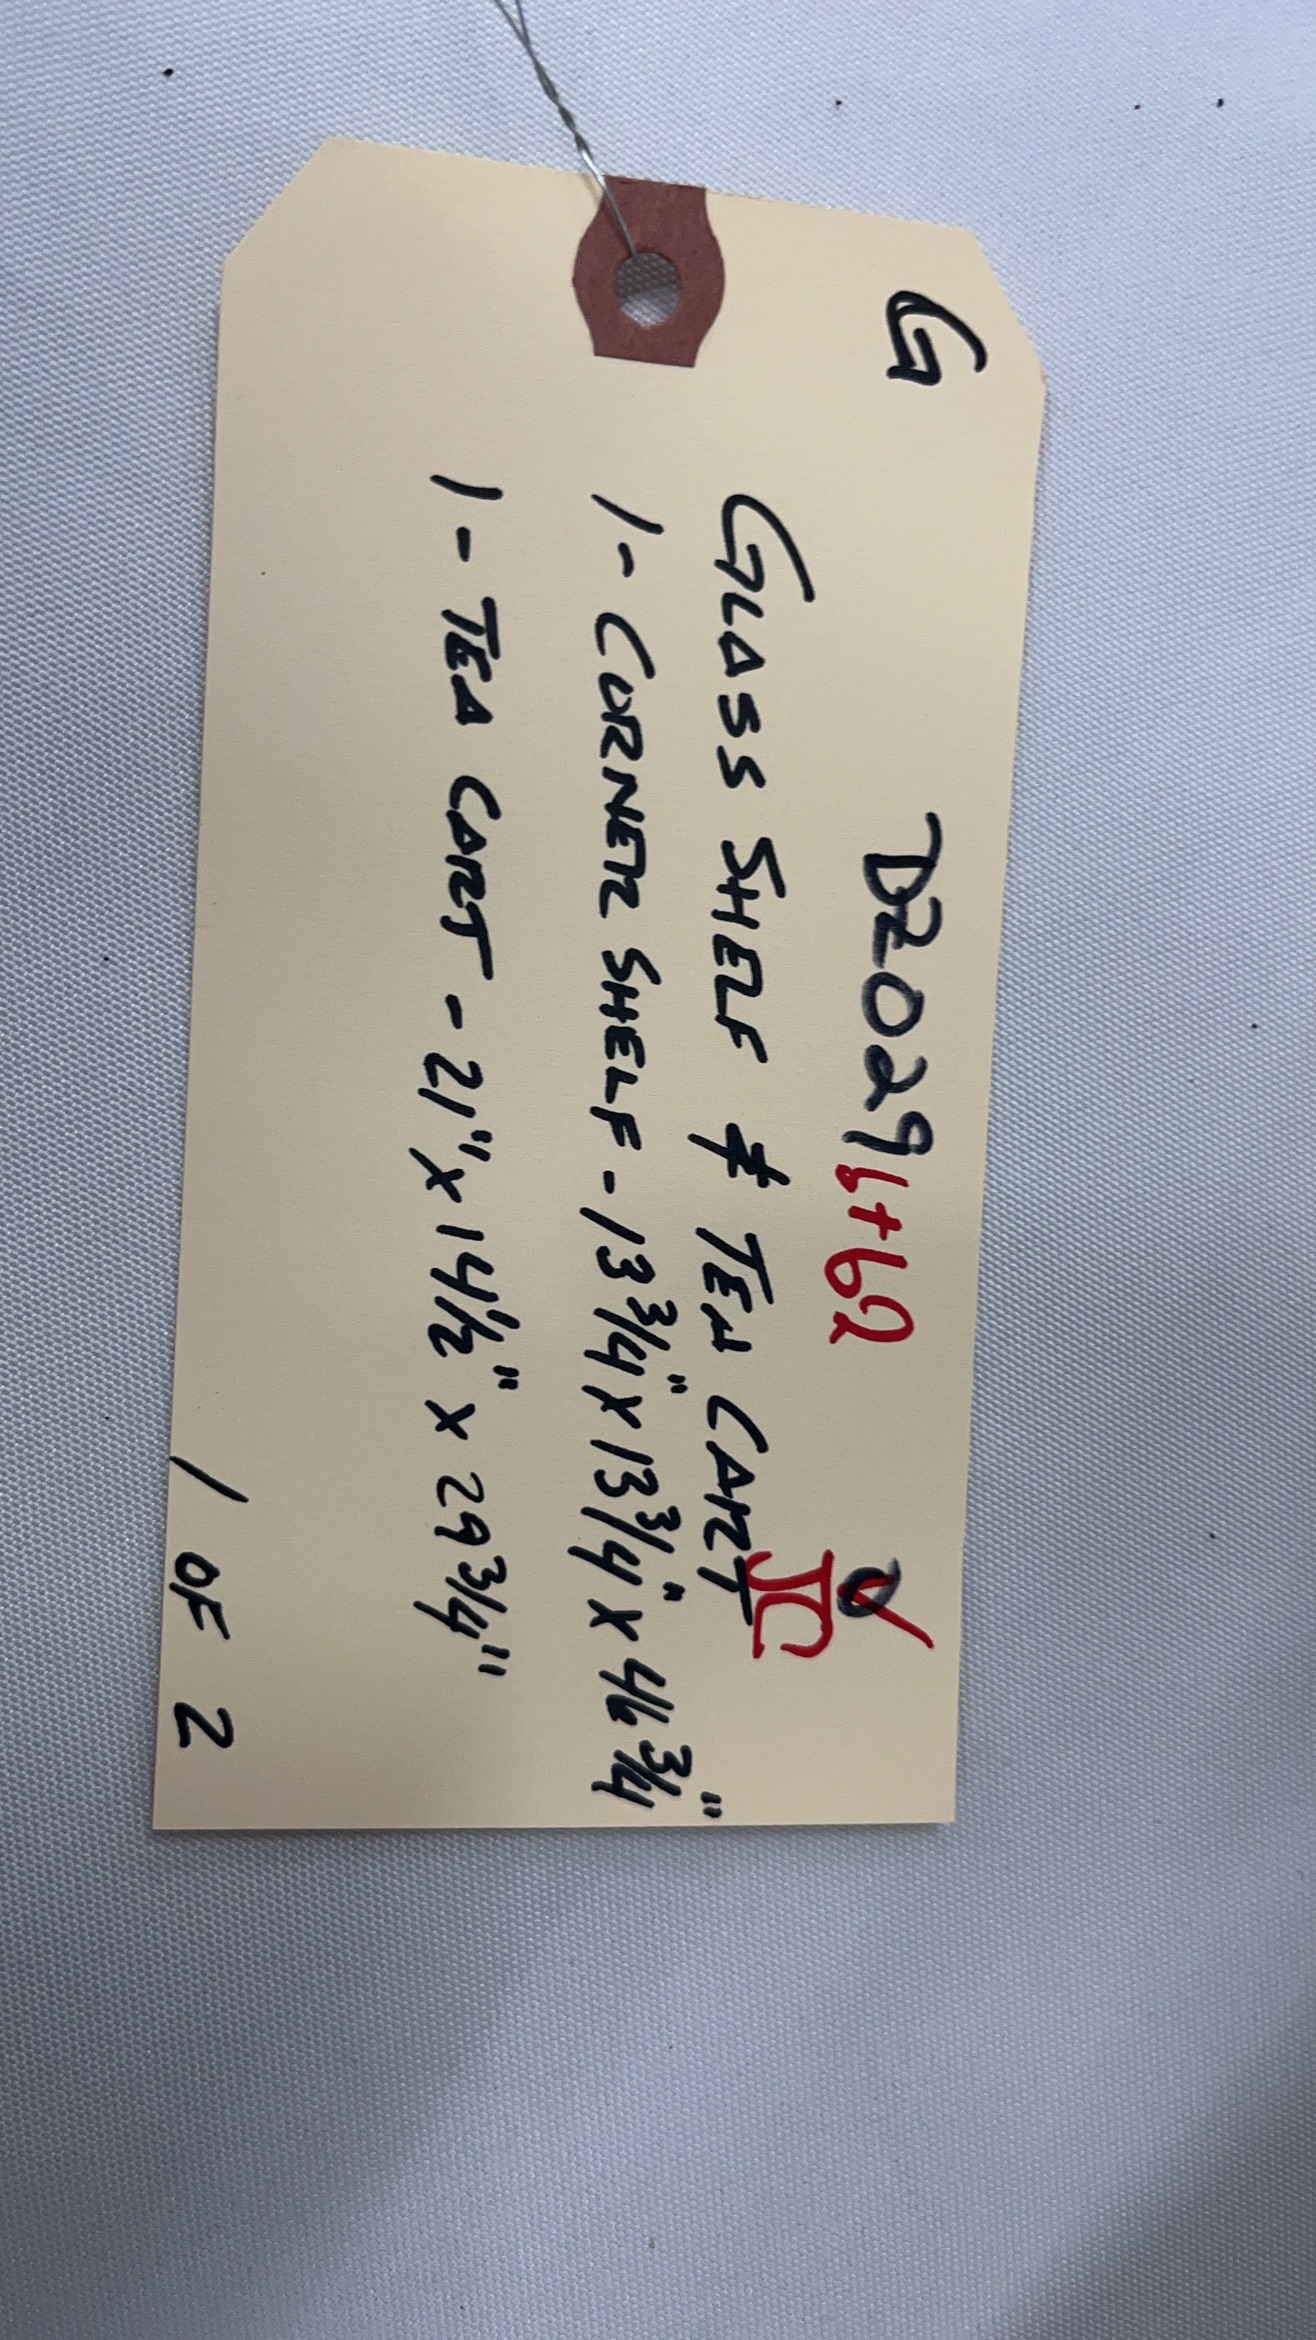 G
DZ029 6+62
GLASS SHELF & TEA CART
1 - CORNER SHELF - 13 3/4" x 13 3/4" x 46 3/4"
1 - TEA CART - 21" x 14 1/2" x 29 3/4"
1 OF 2